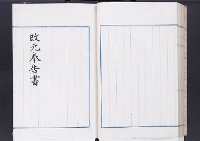 改元奉告書